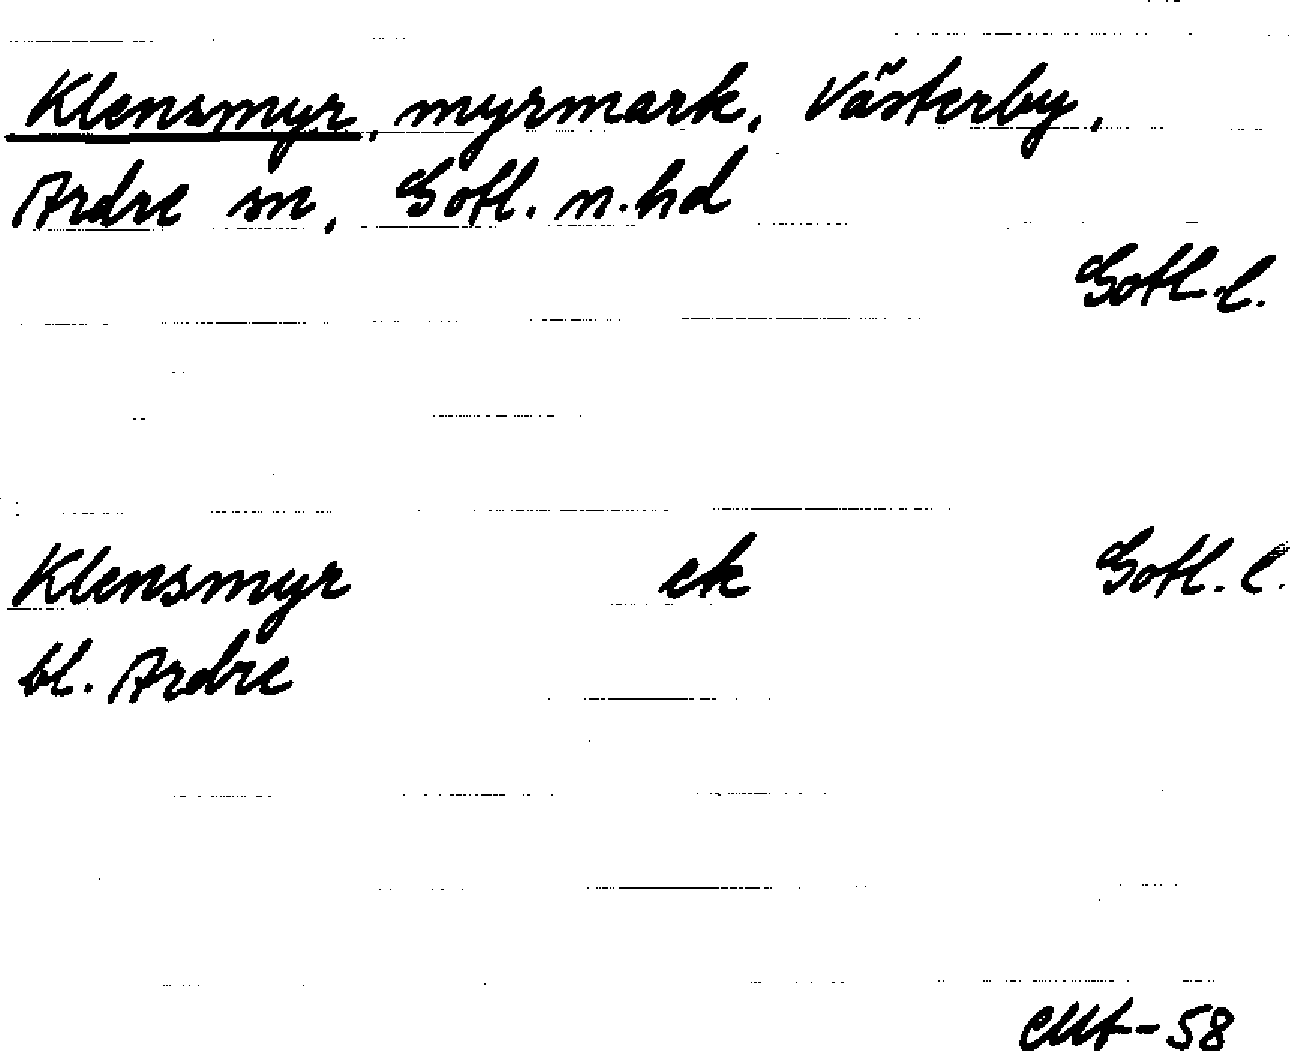 Klensmyr, myrmark, Västerby,
Ardre sn, Gotl. n. hd
Gotl. l.
Klensmyr ek Gotl. l.
bl. Ardre
-58